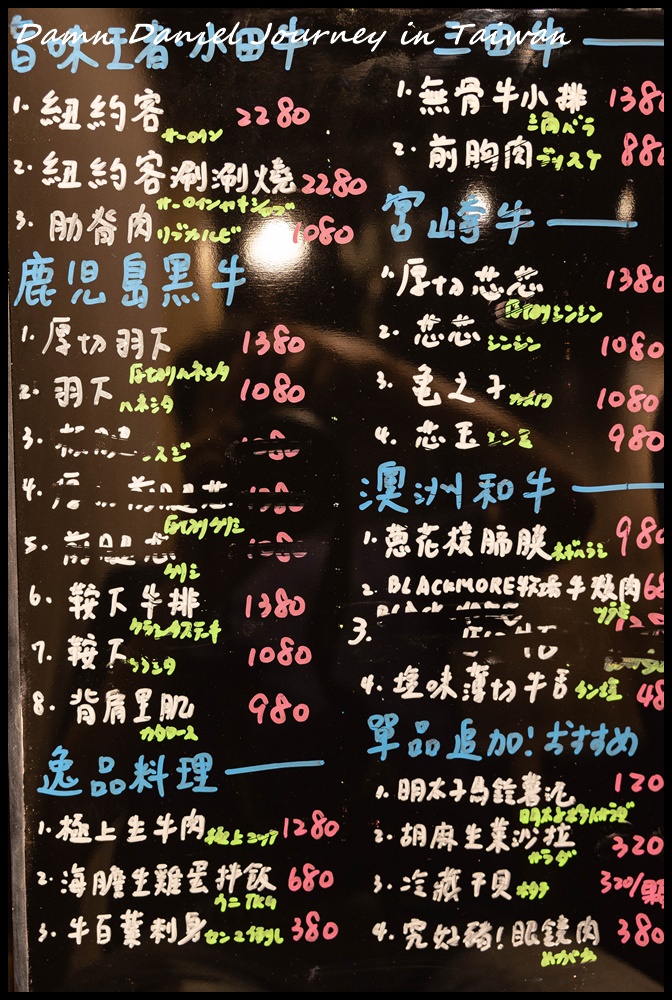 Damn Daniel Journey in Taiwan
旨味王者・水田牛
1. 紐約客 2280
サーロイン
2. 紐約客涮涮燒 2280
サーロインヤキシャブ
3. 肋脊肉 1080
リブカルビ
鹿児島黒牛
1. 厚切羽下 1380
厚切りハネシタ
2. 羽下 1080
ハネシタ
3.
4.
厚切りクリミ
5.
クリミ
6. 鞍下牛排 1380
クラシタステーキ
7. 鞍下 1080
クラシタ
8. 背肩里肌 980
カタロース
逸品料理
1. 極上生牛肉 1280
極上ユッケ
2. 海膽生雞蛋拌飯 680
ウニTKG
3. 牛百葉刺身 380
センマイ刺し
三田牛
1. 無骨牛小排 138
三角バラ
2. 前胸肉 88
ブリスケ
宮崎牛
1. 厚切芯芯 1380
厚切りシンシン
2. 芯芯 1080
シンシン
3. 亀之子 1080
カメノコ
4. 芯玉 980
シンタマ
澳洲和牛
1. 蔥花橫膈膜 980
ネギハラミ
2. BLACKMORE牧場牛頰肉 68
ツラミ
3.
4. 塩味薄切牛舌 48
タン塩
單品追加!おすすめ
1. 明太子馬鈴薯泥 120
明太子ポテトサラダ
2. 胡麻生菜沙拉 320
サラダ
3. 冷藏干貝 320/顆
ホタテ
4. 究好豬!眼鏡肉 380
メガネカ